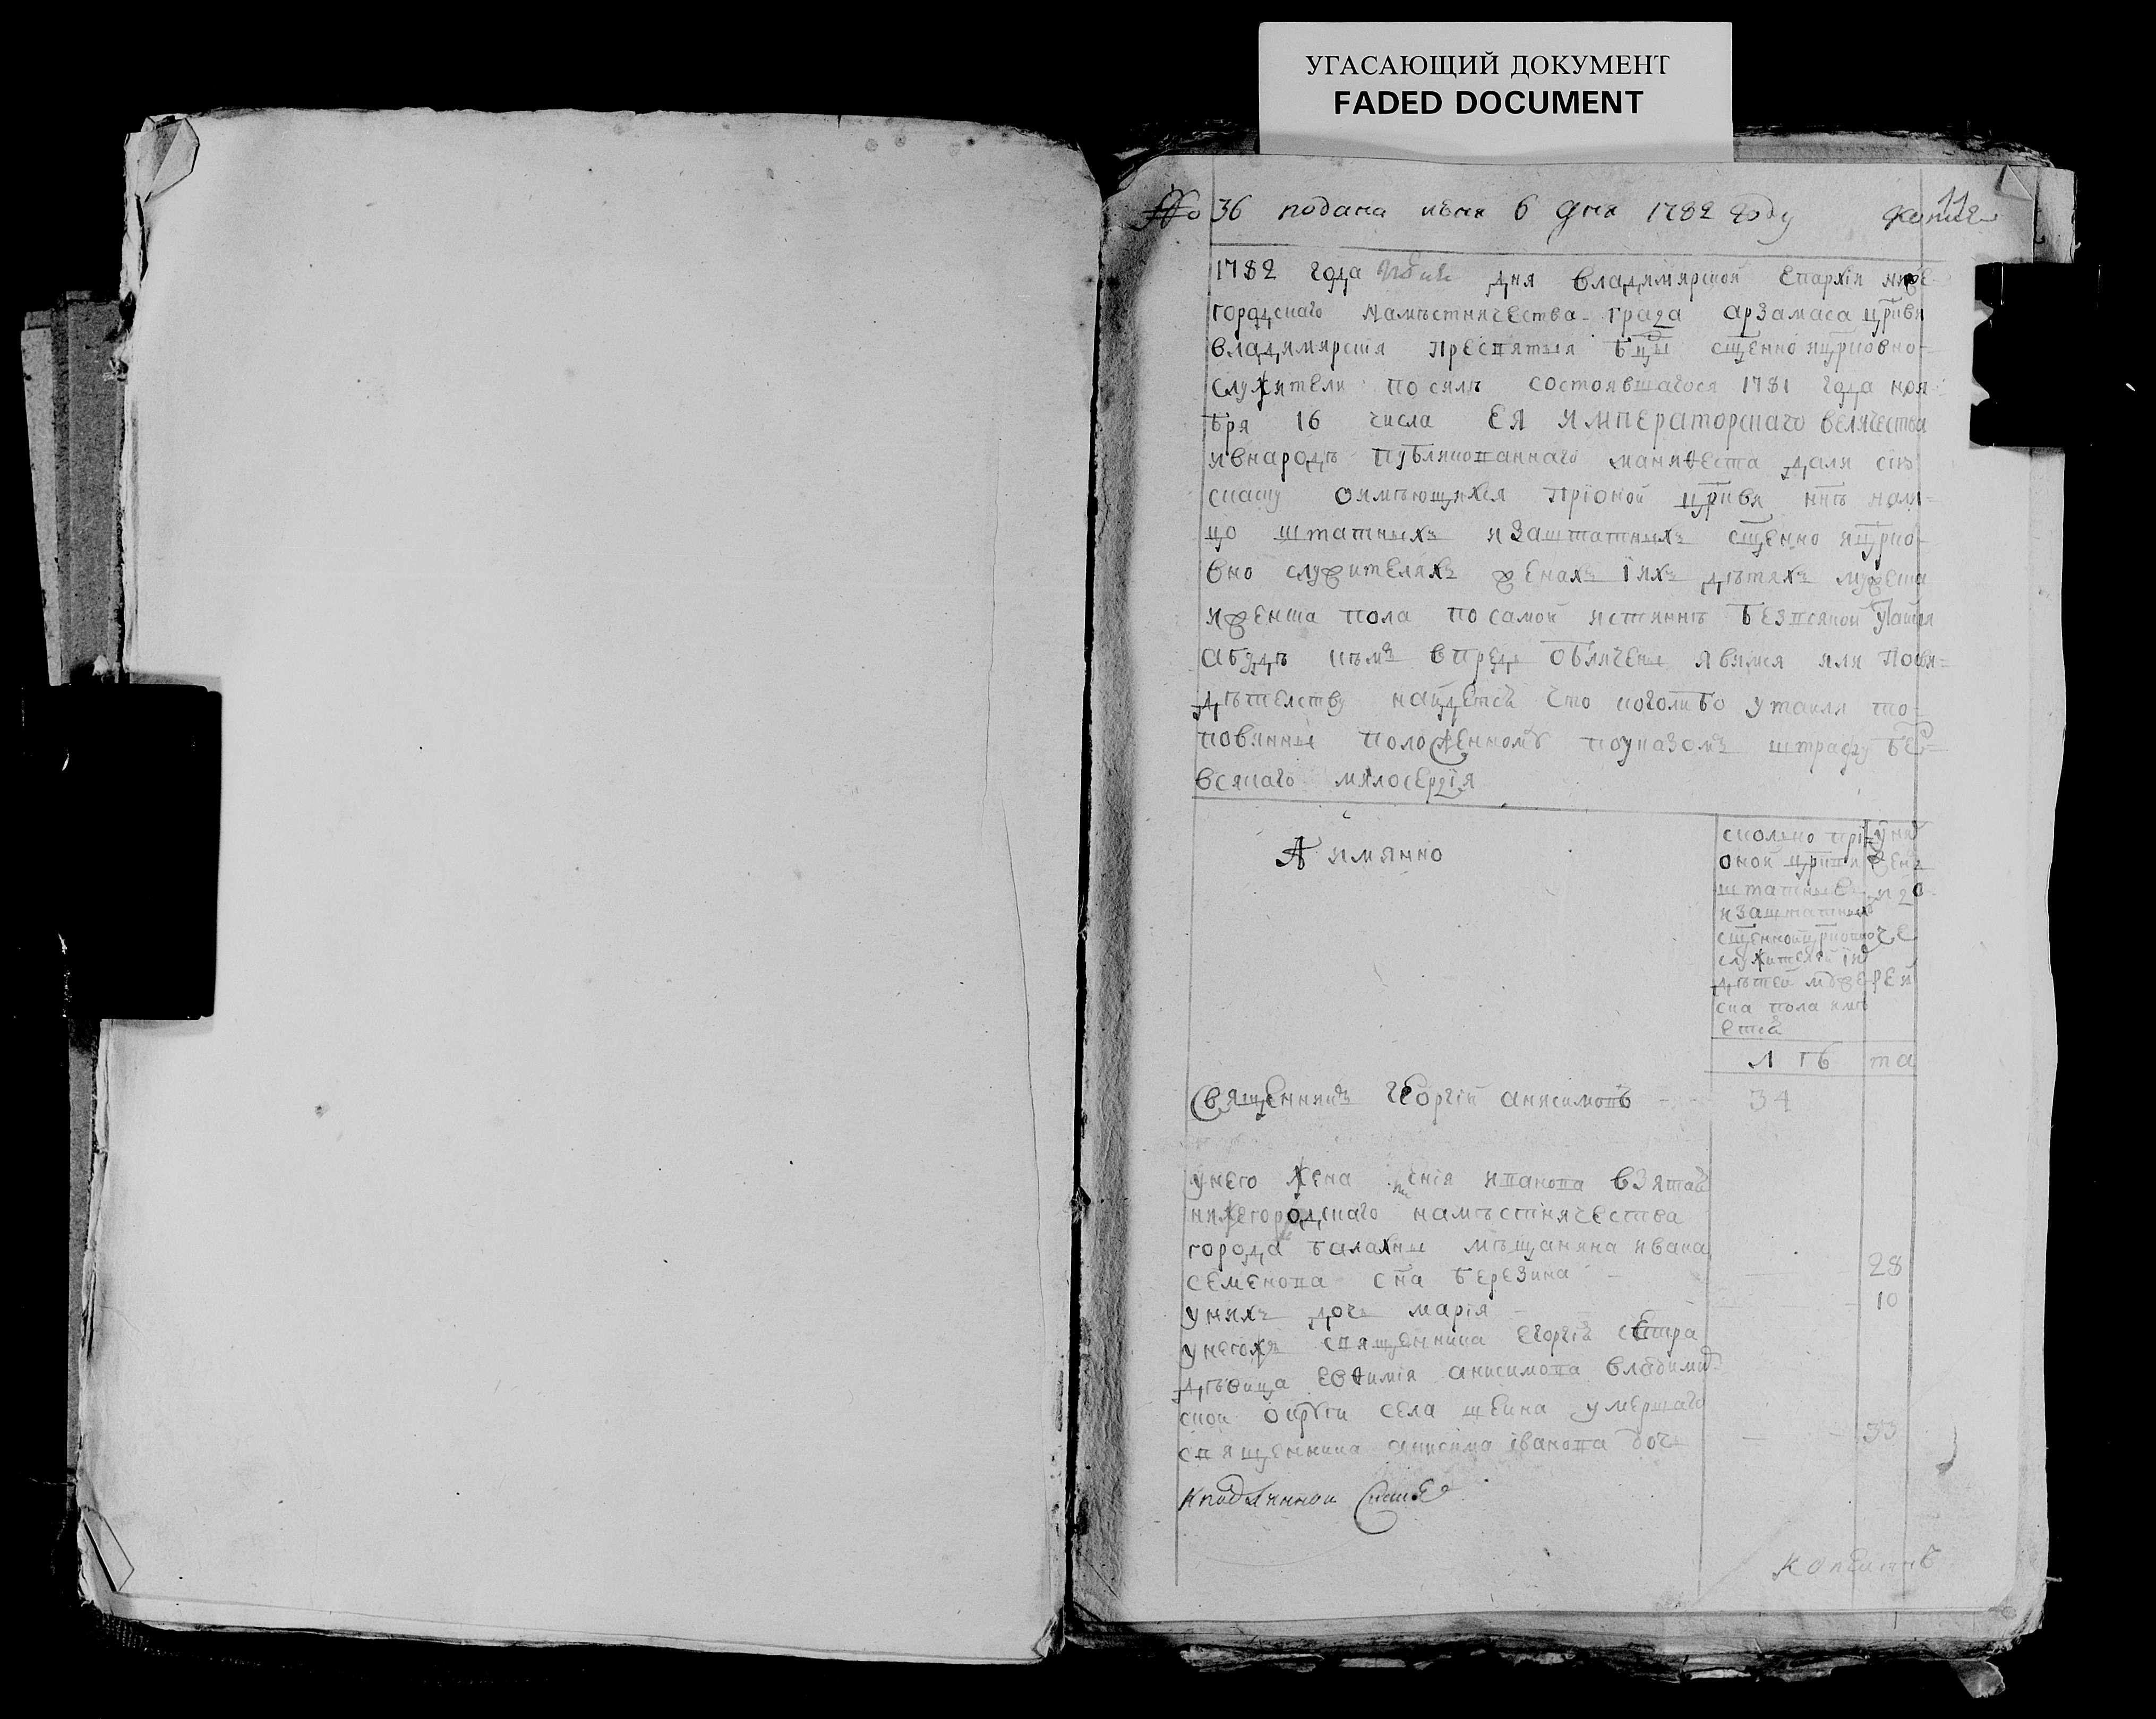 УГАСАЮЩИЙ ДОКУМЕНТ
FADED DOCUMENT
11
№ 36 подана июня 6 дня 1782 году копие
1782 года июня дня владимирской епархiи ниже-
городскаго намѣстничества града арзамаса цркви
владимирския пресвятыя бцы сщенно ицрковно-
служители по силѣ состоявшагося 1781 года ноя-
бря 16 числа ЕЯ ИМПЕРАТОРСКАГО величества
ивнародъ публикованнаго манифеста дали сiю
скаску оимѣющихся прионой цркви ннѣ нали-
цо штатныхъ изаштатныхъ сщенно ицрко-
вно служителяхъ женахъ iихъ дѣтяхъ мужеска
иженска пола по самой истиннѣ безвсякой утайки
абудѣ кѣмъ впредь обличены явимся или посви-
дѣтелству найдется что коголибо утаили то-
повинны положенному поуказомъ штрафу без
всякаго милосердiя
А имянно
сколко при
оной цркви
штатныхъ
изаштатныхъ
сщенноицрковно
служителей iих
дѣтей муже-
ска пола имѣ
ется
уних
женъ
идо
че
рей
лѣ та
Священникъ георгiй анисимовъ 34
унего жена иванова взятая
нижегородскаго намѣстничества
города балахны мѣщанина ивана
семенова сна березина 28
унихъ дочь марiя 10
унегожъ священника георгiя сестра
дѣвица евфимiя анисимова владимир
ской округи села шеина умершаго
священника анисима iванова дочь 33
Кподлинной скаске